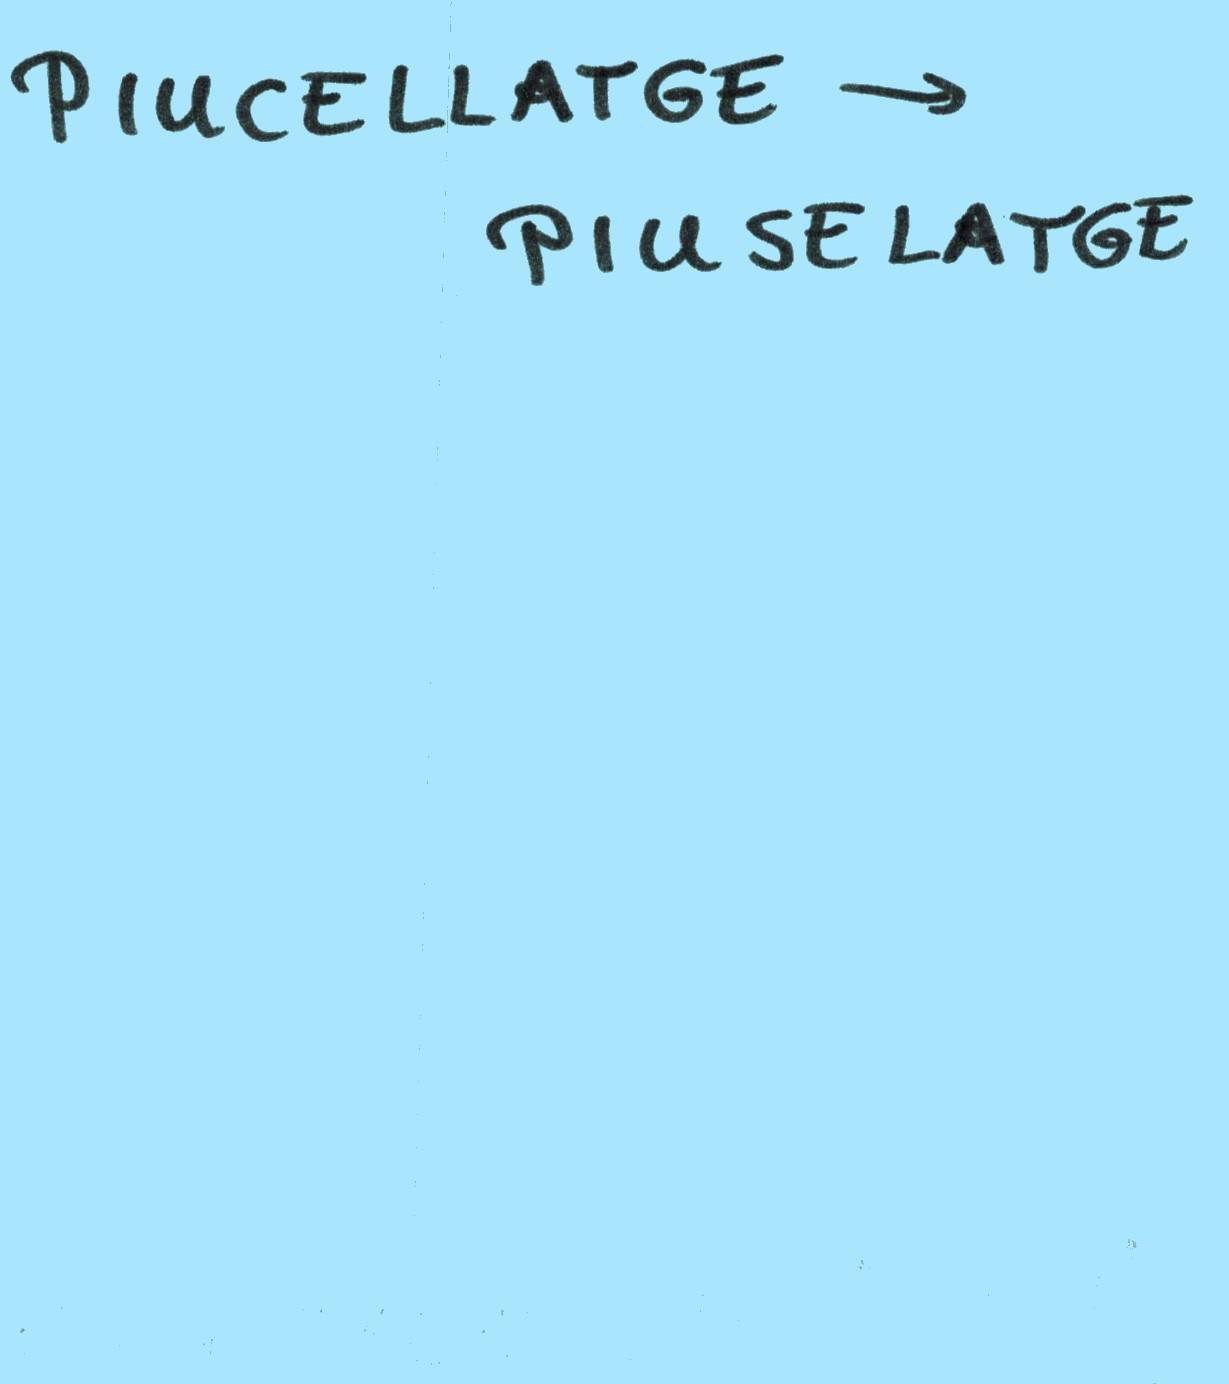 PIUCELLATGE →
PIUSELATGE